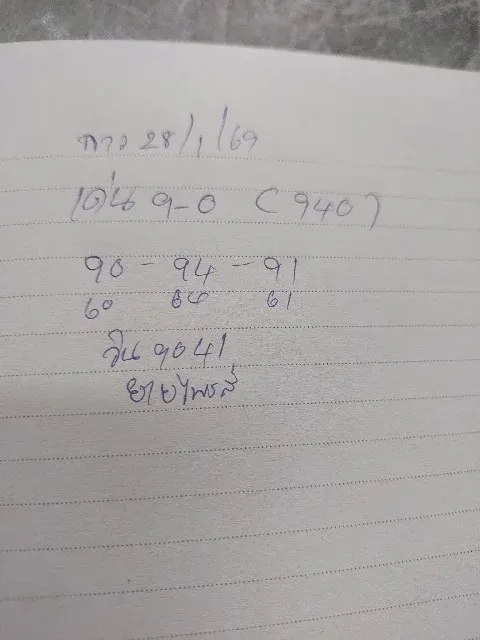 ลาว 28/1/69
เด่น 9-0 (940)
90 - 94 - 91
60 64 61
วิน 9041
ยายไพรส์